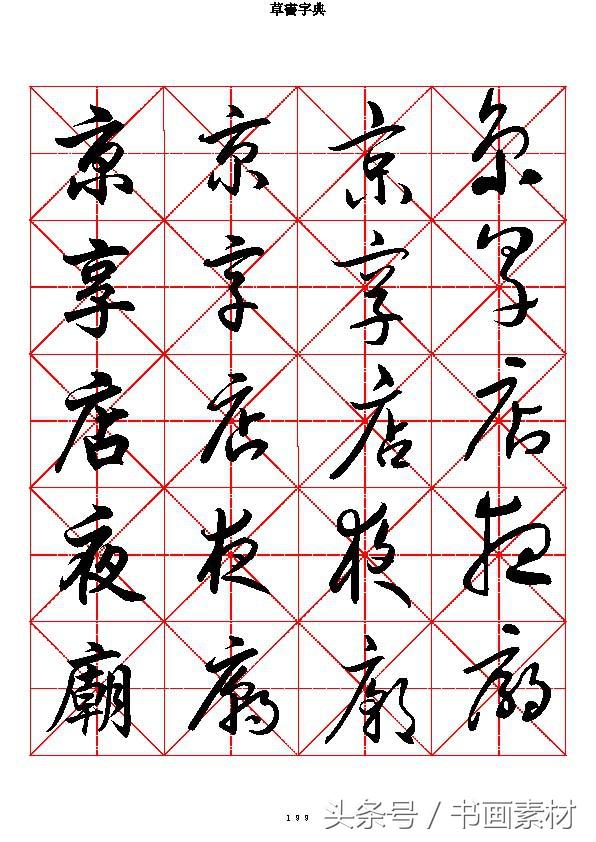 草書字典
京京京京
享享享享
店店店店
夜夜夜夜
廟廟廟廟
199
头条号 / 书画素材